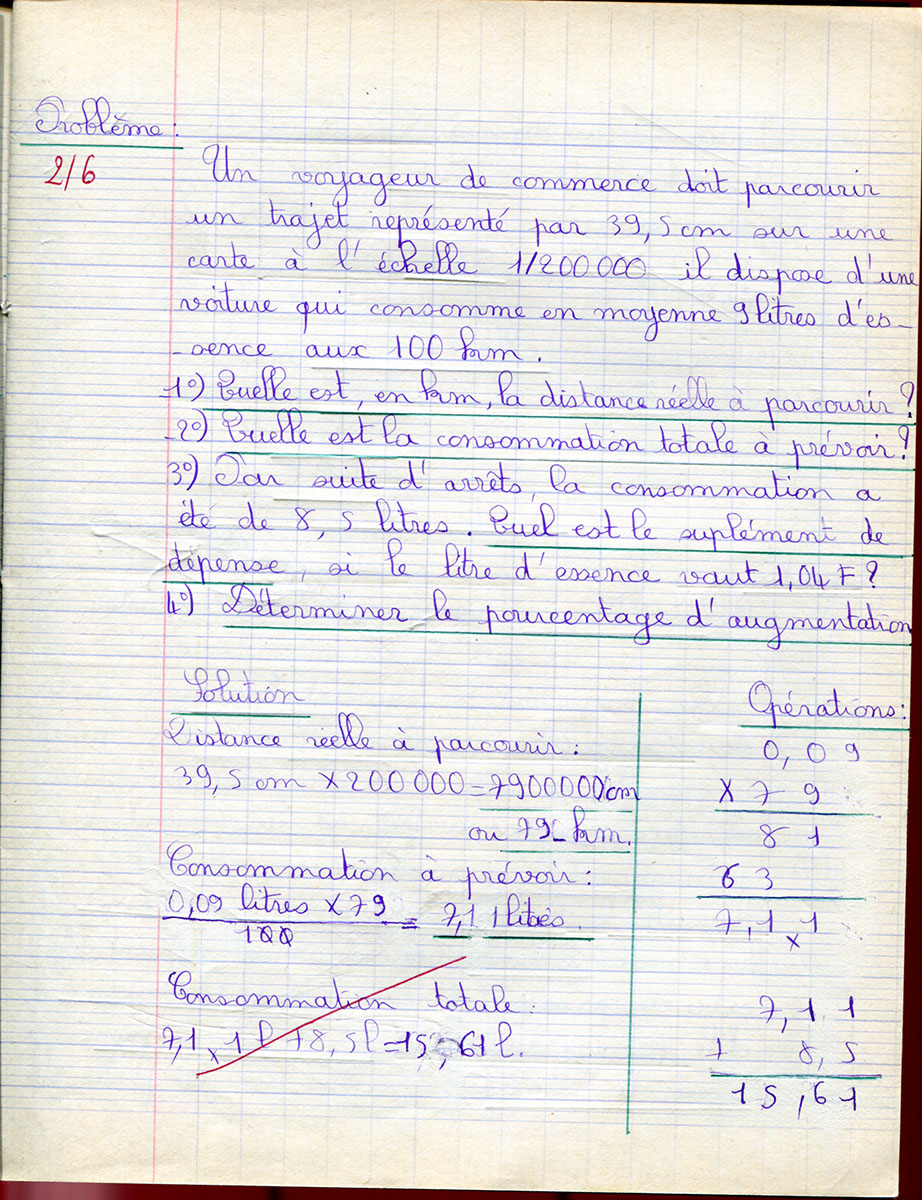 Problème :
2/6
Un voyageur de commerce doit parcourir
un trajet représenté par 39,5 cm sur une
carte à l'échelle 1/200 000 il dispose d'une
voiture qui consomme en moyenne 9 litres d'es-
-sence aux 100 km.
1°) Quelle est, en km, la distance réelle à parcourir ?
2°) Quelle est la consommation totale à prévoir ?
3°) Par suite d'arrêts, la consommation a
été de 8,5 litres. Quel est le suplément de
dépense, si le litre d'essence vaut 1,04 F ?
4°) Déterminer le pourcentage d'augmentation
Solution
Distance réelle à parcourir :
39,5 cm × 200 000 = 7900000 cm
ou 79 km.
Consommation à prévoir :
0,09 litres × 79 = 7,11 litres.
100
Consommation totale :
7,1×1 l + 8,5 l = 15,61 l.
Opérations :
0,09
× 79
81
63
7,1×1
7,11
+ 8,5
15,61